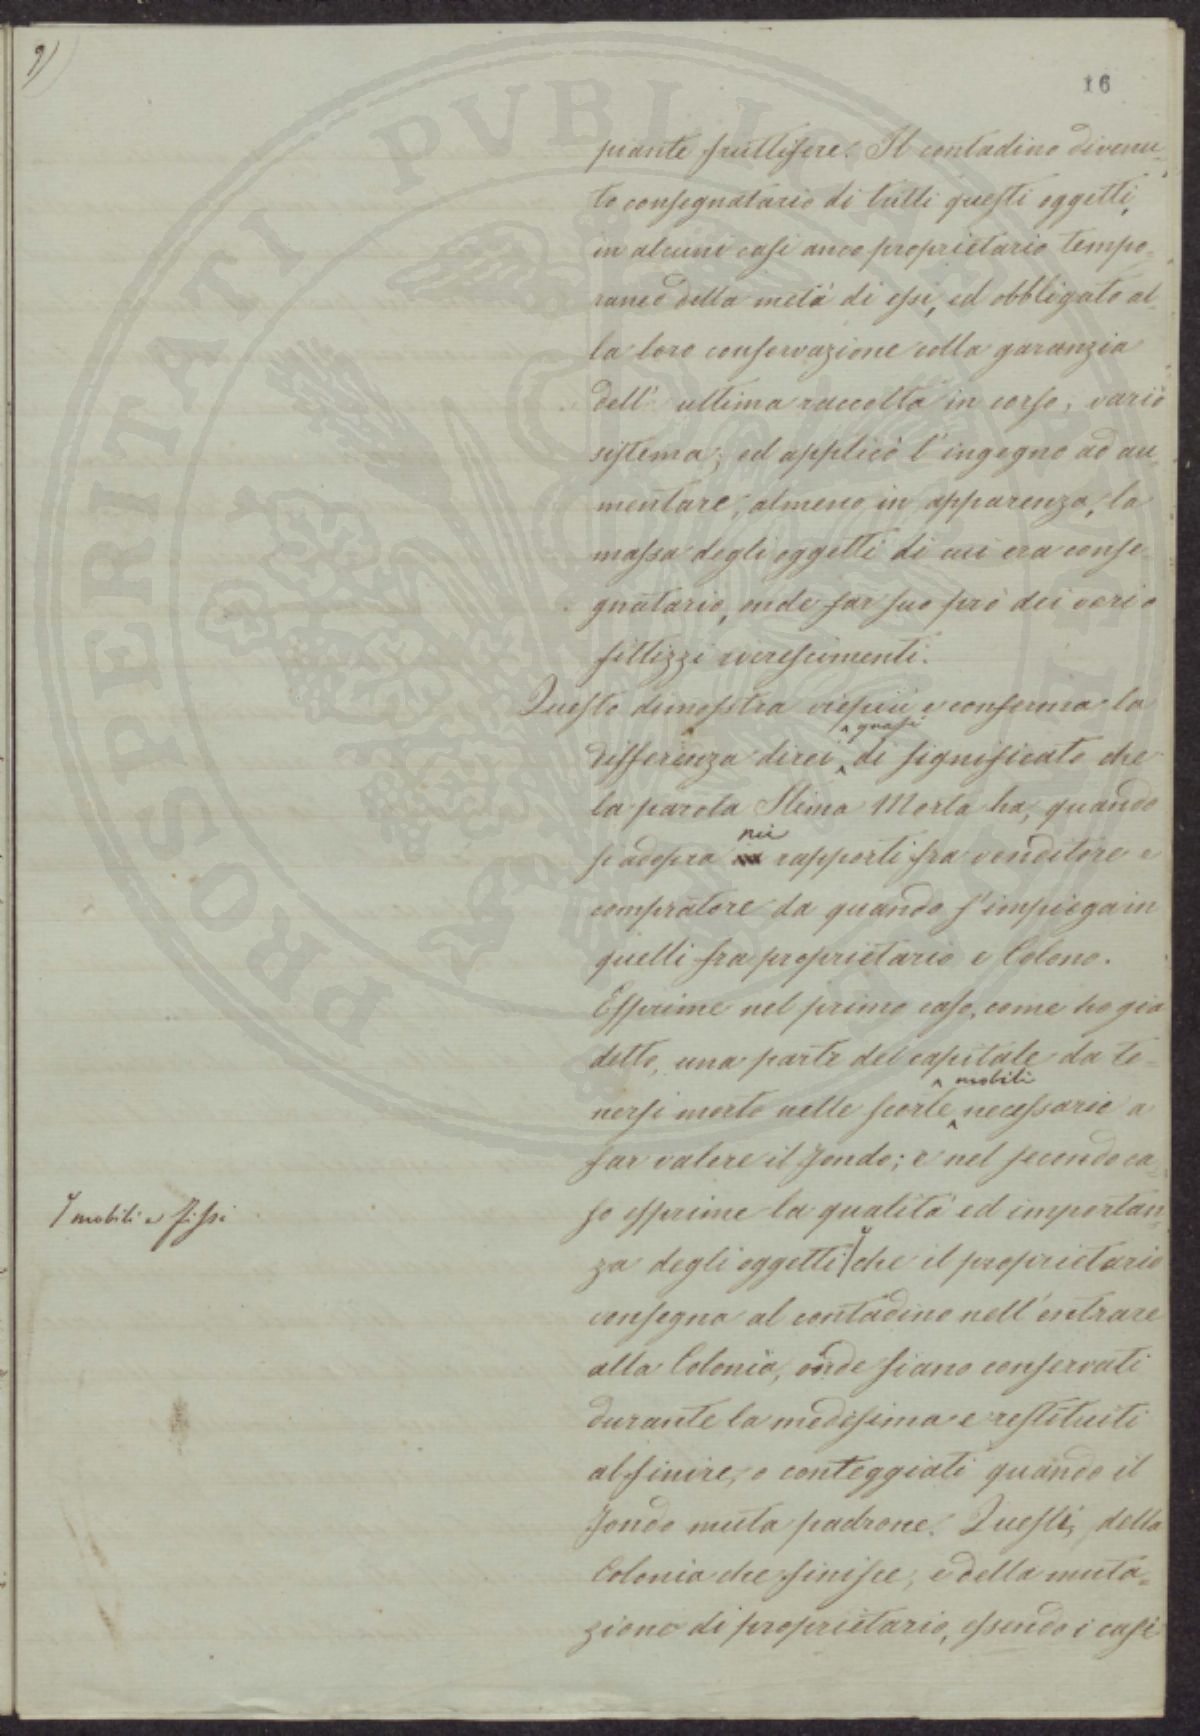 9)
16
piante fruttifere. Il contadino divenu-
to consegnatario di tutti questi oggetti,
in alcuni casi anco proprietario tempo-
raneo della metà di essi, ed obbligato al-
la loro conservazione colla garanzia
dell' ultima raccolta in corso, variò
sistema; ed applicò l'ingegno ad au-
mentare, almeno in apparenza, la
massa degli oggetti di cui era conse-
gnatario, onde far suo prò dei veri o
fittizzi ricrescimenti.
Questo dimostra viepiù e conferma la
differenza direi quasi di significato che
la parola Stima Morta ha, quando
si adopra nei rapporti fra venditore e
compratore da quando s'impiega in
quelli fra proprietario e Colono.
Esprime nel primo caso, come ho gia
detto, una parte del capitale da te-
nersi morto nelle scorte mobili necessario a
far valere il fondo; e nel secondo ca-
so esprime la qualità ed importan-
za degli oggetti che il proprietario
mobili e fissi
consegna al contadino nell'entrare
alla Colonia, onde siano conservati
durante la medesima e restituiti
al finire, o conteggiati quando il
fondo muta padrone. Questi, della
Colonia che finisce, e della muta-
zione di proprietario, essendo i casi
PROSPERITATI PVBLICAE